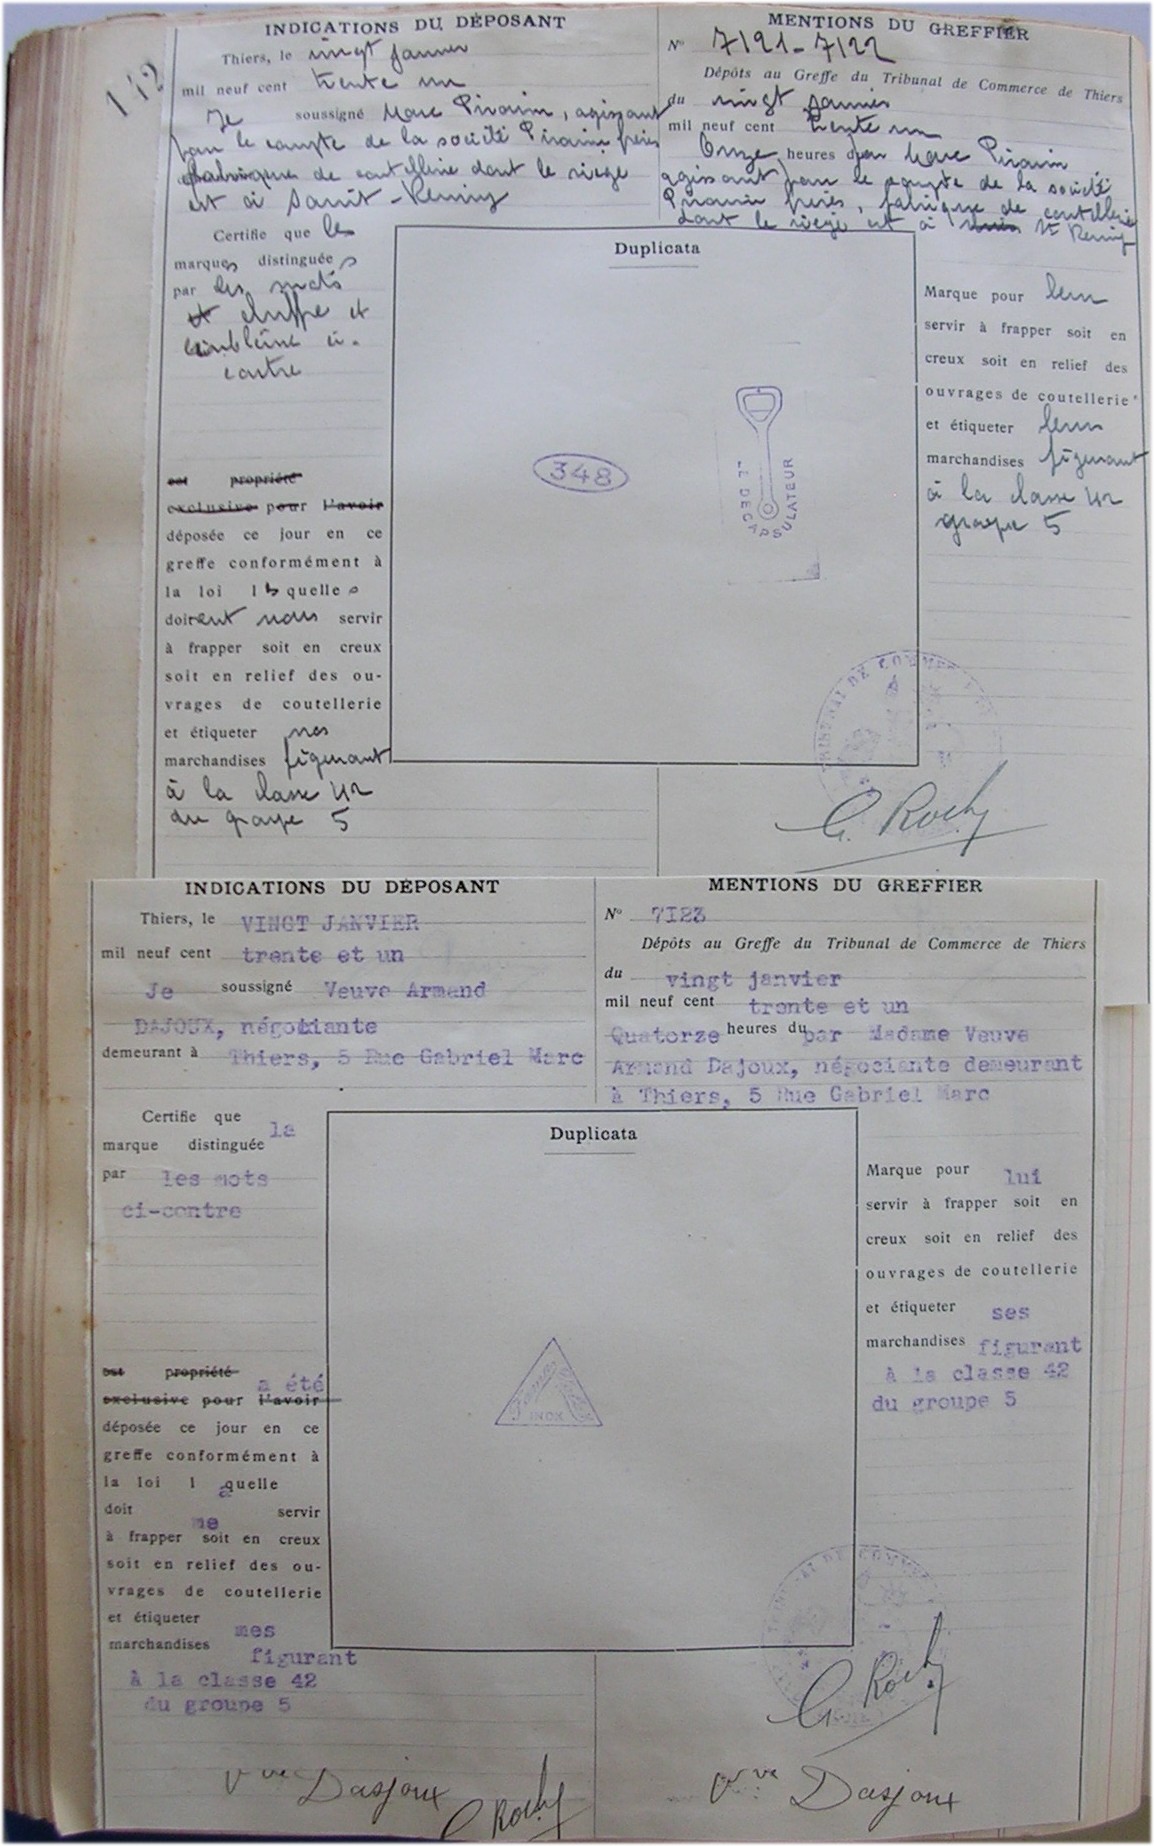 142
INDICATIONS DU DÉPOSANT
Thiers, le vingt janvier
mil neuf cent trente un
Je soussigné Marc Pironin, agissant
pour le compte de la société Pironin frères
fabrique de coutellerie dont le siège
est à Saint-Remy
Certifie que les
marques distinguées
par les mots
et chiffre et
emblème ci-
contre
est propriété
exclusive pour l'avoir
déposée ce jour en ce
greffe conformément à
la loi lesquelles
doivent nous servir
à frapper soit en creux
soit en relief des ou-
vrages de coutellerie
et étiqueter nos
marchandises figurant
à la classe 42
du groupe 5
MENTIONS DU GREFFIER
N° 7121-7122
Dépôts au Greffe du Tribunal de Commerce de Thiers
du vingt janvier
mil neuf cent trente un
Onze heures par Marc Pironin
agissant pour le compte de la société
Pironin frères, fabrique de coutellerie
dont le siège est à St Remy
Duplicata
348
LE DECAPSULATEUR
Marque pour leur
servir à frapper soit en
creux soit en relief des
ouvrages de coutellerie
et étiqueter leurs
marchandises figurant
à la classe 42
groupe 5
TRIBUNAL DE COMMERCE
G. Roch
INDICATIONS DU DÉPOSANT
Thiers, le VINGT JANVIER
mil neuf cent trente et un
Je soussigné Veuve Armand
DAJOUX, négociante
demeurant à Thiers, 5 Rue Gabriel Marc
Certifie que la
marque distinguée
par les mots
ci-contre
est propriété a été
exclusive pour l'avoir
déposée ce jour en ce
greffe conformément à
la loi laquelle
doit me servir
à frapper soit en creux
soit en relief des ou-
vrages de coutellerie
et étiqueter mes
marchandises figurant
à la classe 42
du groupe 5
Vve Dasjoux
G. Roch
MENTIONS DU GREFFIER
N° 7I23
Dépôts au Greffe du Tribunal de Commerce de Thiers
du vingt janvier
mil neuf cent trente et un
Quatorze heures du par Madame Veuve
Armand Dajoux, négociante demeurant
à Thiers, 5 Rue Gabriel Marc
Duplicata
INOX
Marque pour lui
servir à frapper soit en
creux soit en relief des
ouvrages de coutellerie
et étiqueter ses
marchandises figurant
à la classe 42
du groupe 5
TRIBUNAL DE COMMERCE
G. Roch
Vve Dasjoux